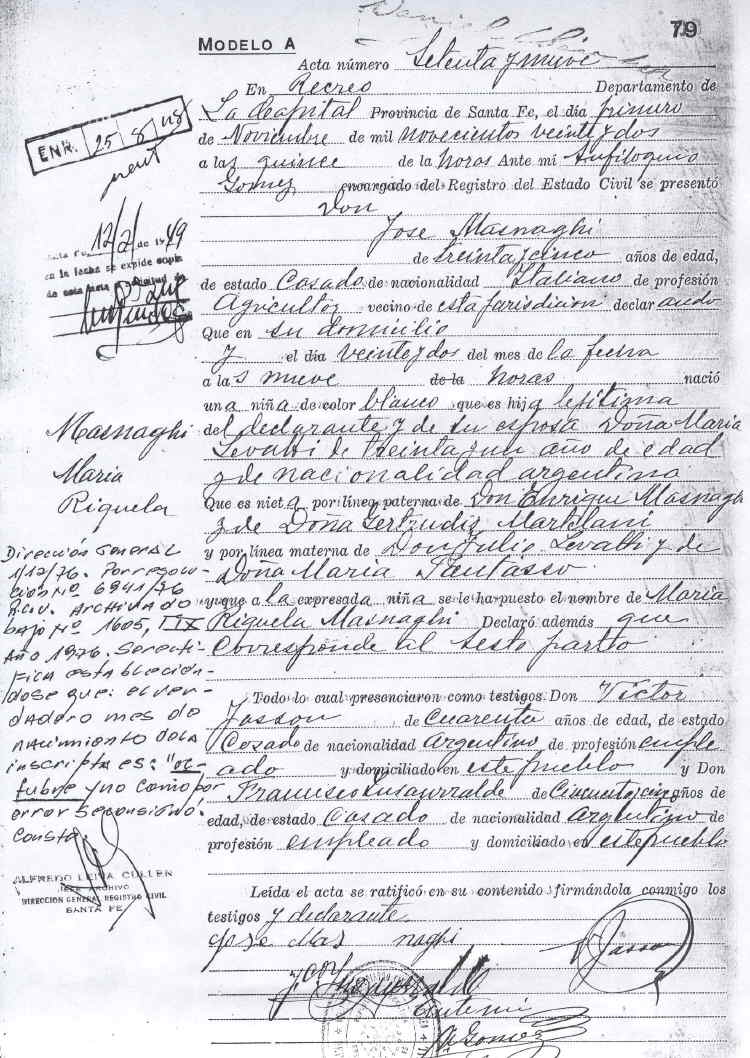 79
MODELO A
Acta número Setenta y nueve
En Recreo Departamento de
La Capital Provincia de Santa Fe, el día primero
de Noviembre de mil novecientos veinte y dos
a las quince de la horas Ante mi Anfiloquio
Gomez encargado del Registro del Estado Civil se presentó
Don
Jose Masnaghi
de treinta y cinco años de edad,
de estado Casado de nacionalidad Italiano de profesión
Agricultor vecino de esta jurisdicion declarando
Que en su domicilio
y el día veinte y dos del mes de la fecha
a las nueve de la horas nació
una niña de color blanco que es hija lejitima
del declarante y de su esposa Doña Maria
Levatti de treinta y un año de edad
y de nacionalidad argentina
Que es nieta por línea paterna de Don Enrique Masnaghi
y de Doña Gertrudis
y por línea materna de Don Julio Levatti y de
Doña Maria Santasso
y que a la expresada niña se le ha puesto el nombre de Maria
Riquela Masnaghi Declaró además que
Corresponde al sesto parto
Todo lo cual presenciaron como testigos Don Victor
Jasson de cuarenta años de edad, de estado
Casado de nacionalidad Argentino de profesión emple
ado y domiciliado en este pueblo y Don
Francisco Lusawrralde de Cincuenta y cinco años de
edad, de estado Casado de nacionalidad Argentino de
profesión empleado y domiciliado en este pueblo
Leída el acta se ratificó en su contenido firmándola conmigo los
testigos y declarante
Jose Mas naghi
V Jasson
Ante mi
A. Gomez
ENR. 25 8 48
12/2/ de 1949
en la fecha se expide copia
de esta acta a solicitud de
Masnaghi
Maria
Riquela
Dirección General
1/12/76. Por resolu-
ción Nº 6941/76
R.C.V. Archivado
bajo Nº 1605, T IX
Año 1976. Se recti-
fica establecien-
dose que: el ver-
dadero mes de
nacimiento de la
inscripta es: "oc-
tubre" y no como por
error se consignó.
Consta.
ALFREDO LEIVA CULLEN
JEFE ARCHIVO
DIRECCION GENERAL REGISTRO CIVIL
SANTA FE